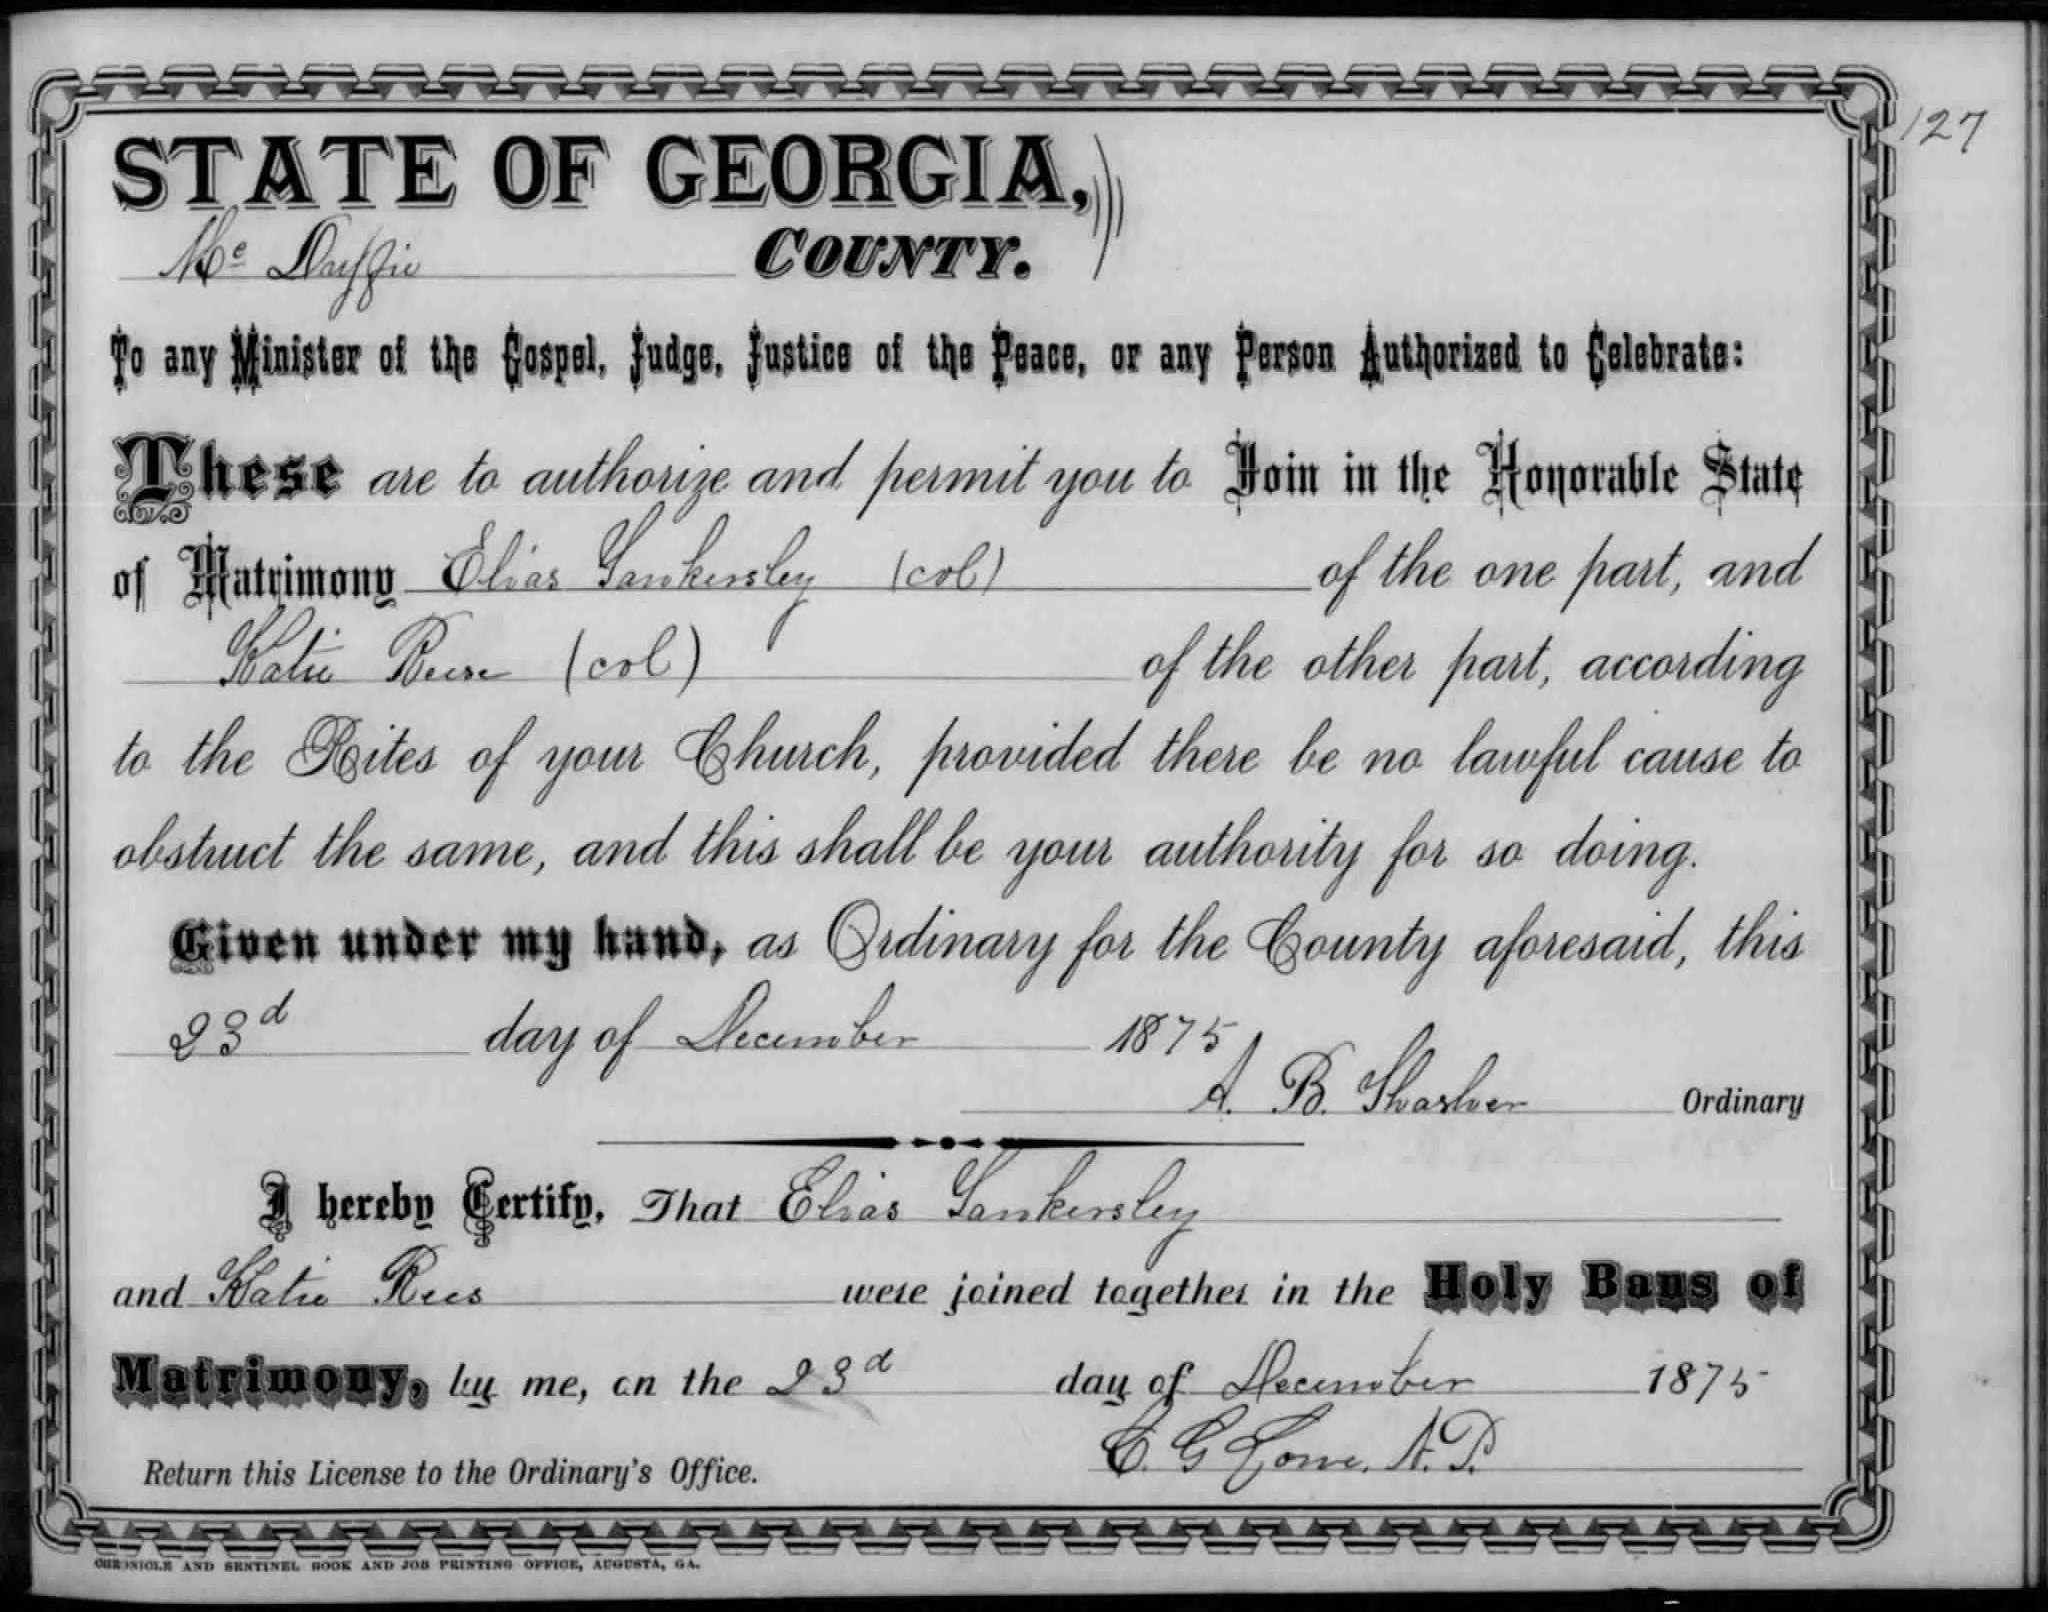 127
STATE OF GEORGIA,
Mc Duffie COUNTY.
To any Minister of the Gospel, Judge, Justice of the Peace, or any Person Authorized to Celebrate:
These are to authorize and permit you to Join in the Honorable State
of Matrimony Elias Tankersley (col) of the one part, and
Katie Reese (col) of the other part, according
to the Rites of your Church, provided there be no lawful cause to
obstruct the same, and this shall be your authority for so doing.
Given under my hand, as Ordinary for the County aforesaid, this
23d day of December 1875
A. B. Thrasher Ordinary
I hereby Certify, That Elias Tankersley
and Katie Rees were joined together in the Holy Bans of
Matrimony, by me, on the 23d day of December 1875
C. G Lowe, N. P.
Return this License to the Ordinary's Office.
CHRONICLE AND SENTINEL BOOK AND JOB PRINTING OFFICE, AUGUSTA, GA.